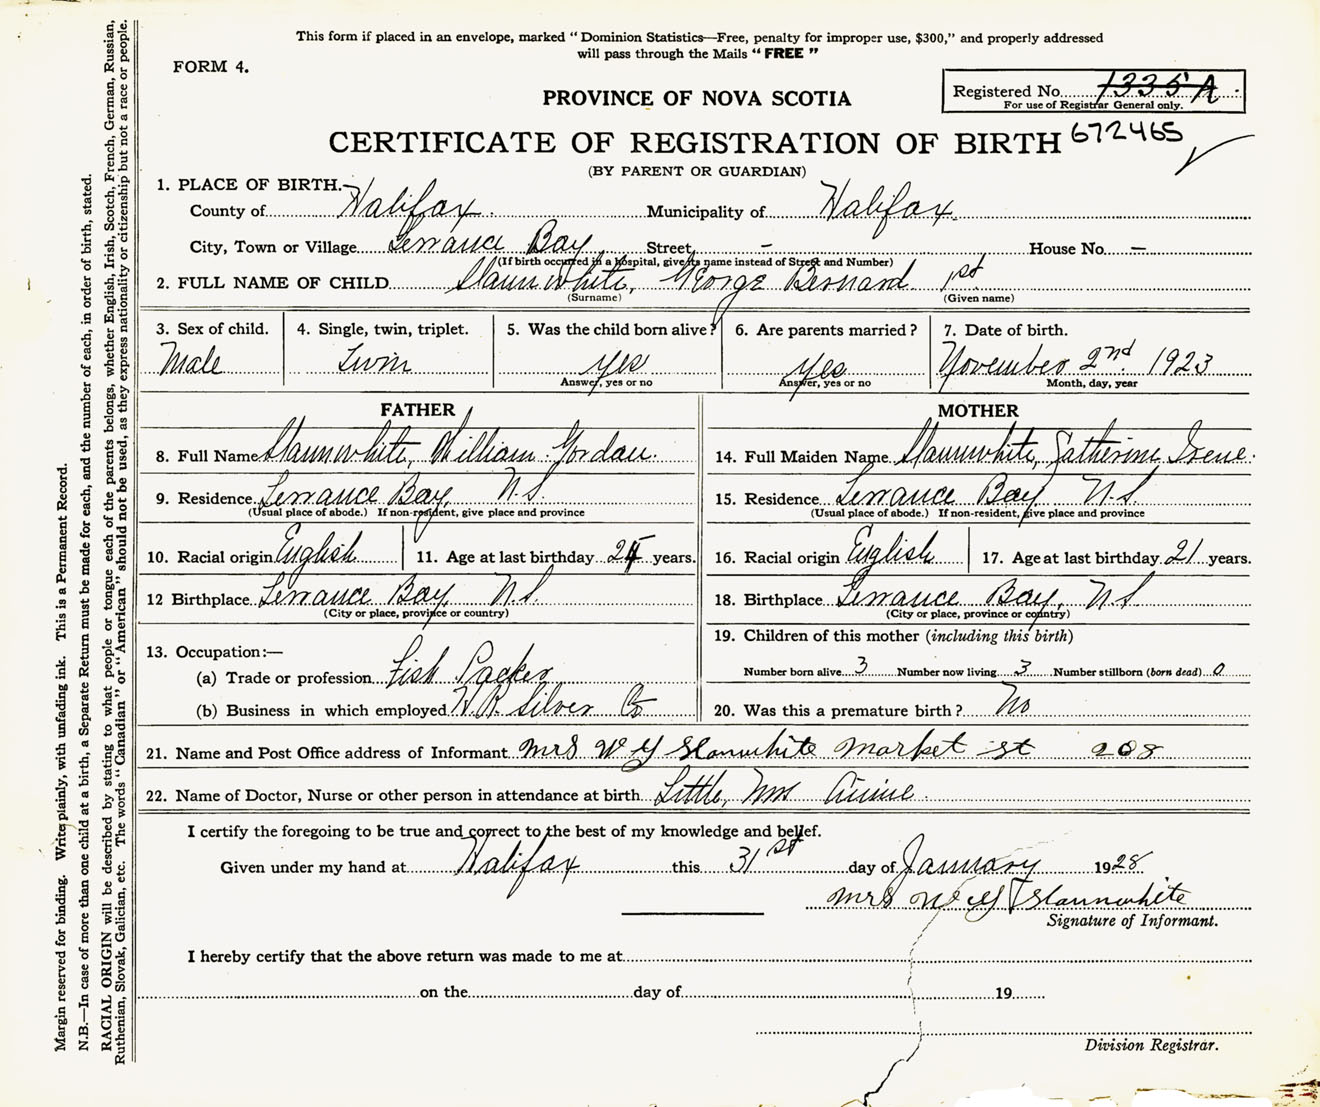 This form if placed in an envelope, marked “ Dominion Statistics—Free, penalty for improper use, $300,” and properly addressed
will pass through the Mails “ FREE ”
FORM 4.
Registered No. 1335 A
For use of Registrar General only.
PROVINCE OF NOVA SCOTIA
CERTIFICATE OF REGISTRATION OF BIRTH 672465
(BY PARENT OR GUARDIAN)
1. PLACE OF BIRTH.
County of Halifax Municipality of Halifax
City, Town or Village Terrance Bay Street - House No. -
(If birth occurred in a hospital, give its name instead of Street and Number)
2. FULL NAME OF CHILD Slaunwhite, George Bernard 1st
(Surname) (Given name)
3. Sex of child. 4. Single, twin, triplet. 5. Was the child born alive? 6. Are parents married? 7. Date of birth.
Male Twin yes yes November 2nd 1923
Answer, yes or no Answer, yes or no Month, day, year
FATHER MOTHER
8. Full Name Slaunwhite, William Gordan. 14. Full Maiden Name Slaunwhite, Catherine Irene.
9. Residence Terrance Bay, N.S. 15. Residence Terrance Bay N.S.
(Usual place of abode.) If non-resident, give place and province (Usual place of abode.) If non-resident, give place and province
10. Racial origin English 11. Age at last birthday 24 years. 16. Racial origin English 17. Age at last birthday 21 years.
12 Birthplace Terrance Bay, N.S. 18. Birthplace Terrance Bay, N.S.
(City or place, province or country) (City or place, province or country)
19. Children of this mother (including this birth)
13. Occupation:—
Number born alive 3 Number now living 3 Number stillborn (born dead) 0
(a) Trade or profession Fish Packer
(b) Business in which employed N.R. Silver Co 20. Was this a premature birth? No
21. Name and Post Office address of Informant Mrs W G Slaunwhite Market st 208
22. Name of Doctor, Nurse or other person in attendance at birth Little, Mrs Annie.
I certify the foregoing to be true and correct to the best of my knowledge and belief.
Given under my hand at Halifax this 31st day of January 1928
Mrs W G Slaunwhite
Signature of Informant.
I hereby certify that the above return was made to me at
on the day of 19
Division Registrar.
Margin reserved for binding. Write plainly, with unfading ink. This is a Permanent Record.
N.B.—In case of more than one child at a birth, a Separate Return must be made for each, and the number of each, in order of birth, stated.
RACIAL ORIGIN will be described by stating to what people or tongue each of the parents belongs, whether English, Irish, Scotch, French, German, Russian,
Ruthenian, Slovak, Galician, etc. The words “ Canadian ” or “ American ” should not be used, as they express nationality or citizenship but not a race or people.